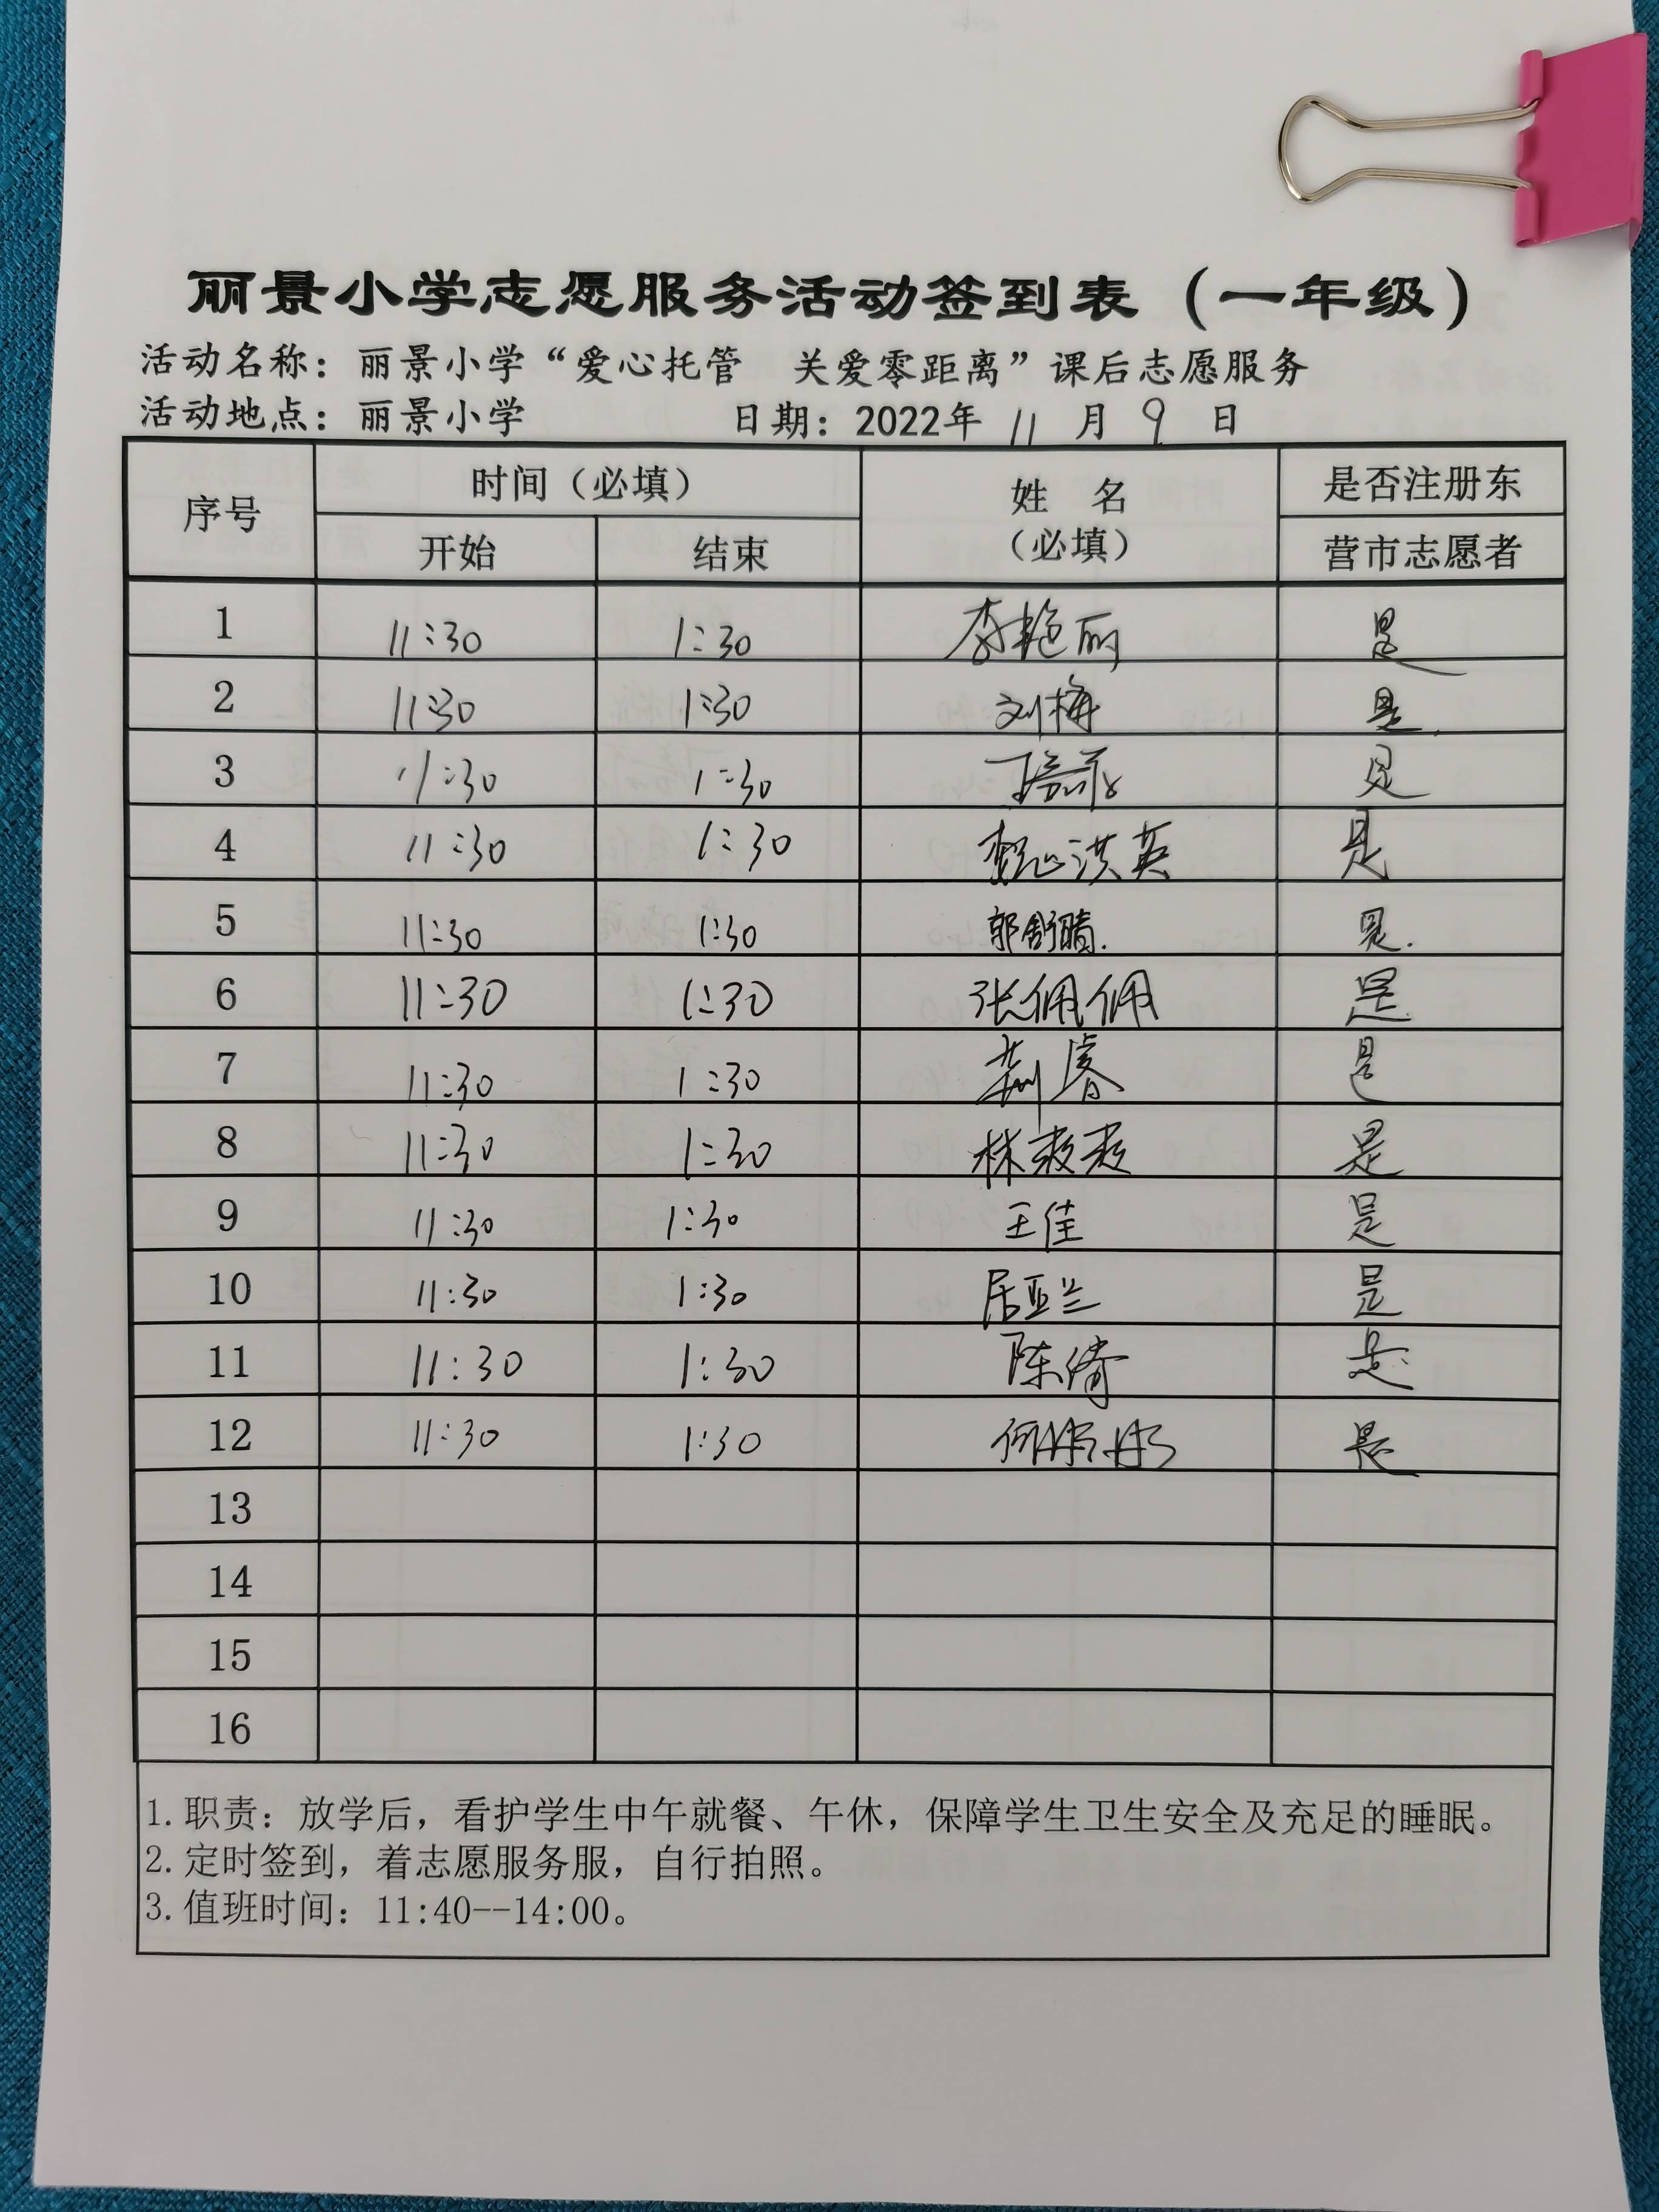 丽景小学志愿服务活动签到表（一年级）
活动名称：丽景小学“爱心托管 关爱零距离”课后志愿服务
活动地点：丽景小学 日期：2022年 11 月 9 日
序号 时间（必填） 姓 名（必填） 是否注册东营市志愿者
开始 结束
1 11:30 1:30 李艳丽 是
2 11:30 1:30 刘梅 是.
3 11:30 1:30 是
4 11:30 1:30 魏洪英 是
5 11:30 1:30 郭舒晴. 是.
6 11:30 1:30 张佩佩 是
7 11:30 1:30 睿 是
8 11:30 1:30 林 是
9 11:30 1:30 王佳 是
10 11:30 1:30 居亚兰 是
11 11:30 1:30 陈倩 是
12 11:30 1:30 何彬彬 是
13
14
15
16
1.职责：放学后，看护学生中午就餐、午休，保障学生卫生安全及充足的睡眠。
2.定时签到，着志愿服务服，自行拍照。
3.值班时间：11:40--14:00。